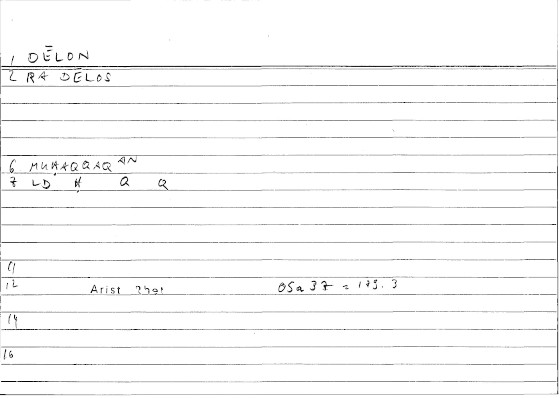 1 DĒLON
2 RA DĒLOS
6 MUḤAQQAQ AN
7 LD Ḥ Q Q
11
12 Arist Rhet OSa 37 = 179.3
14
16